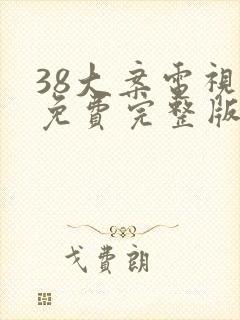 38大案電視
免費完整版
戈費朗